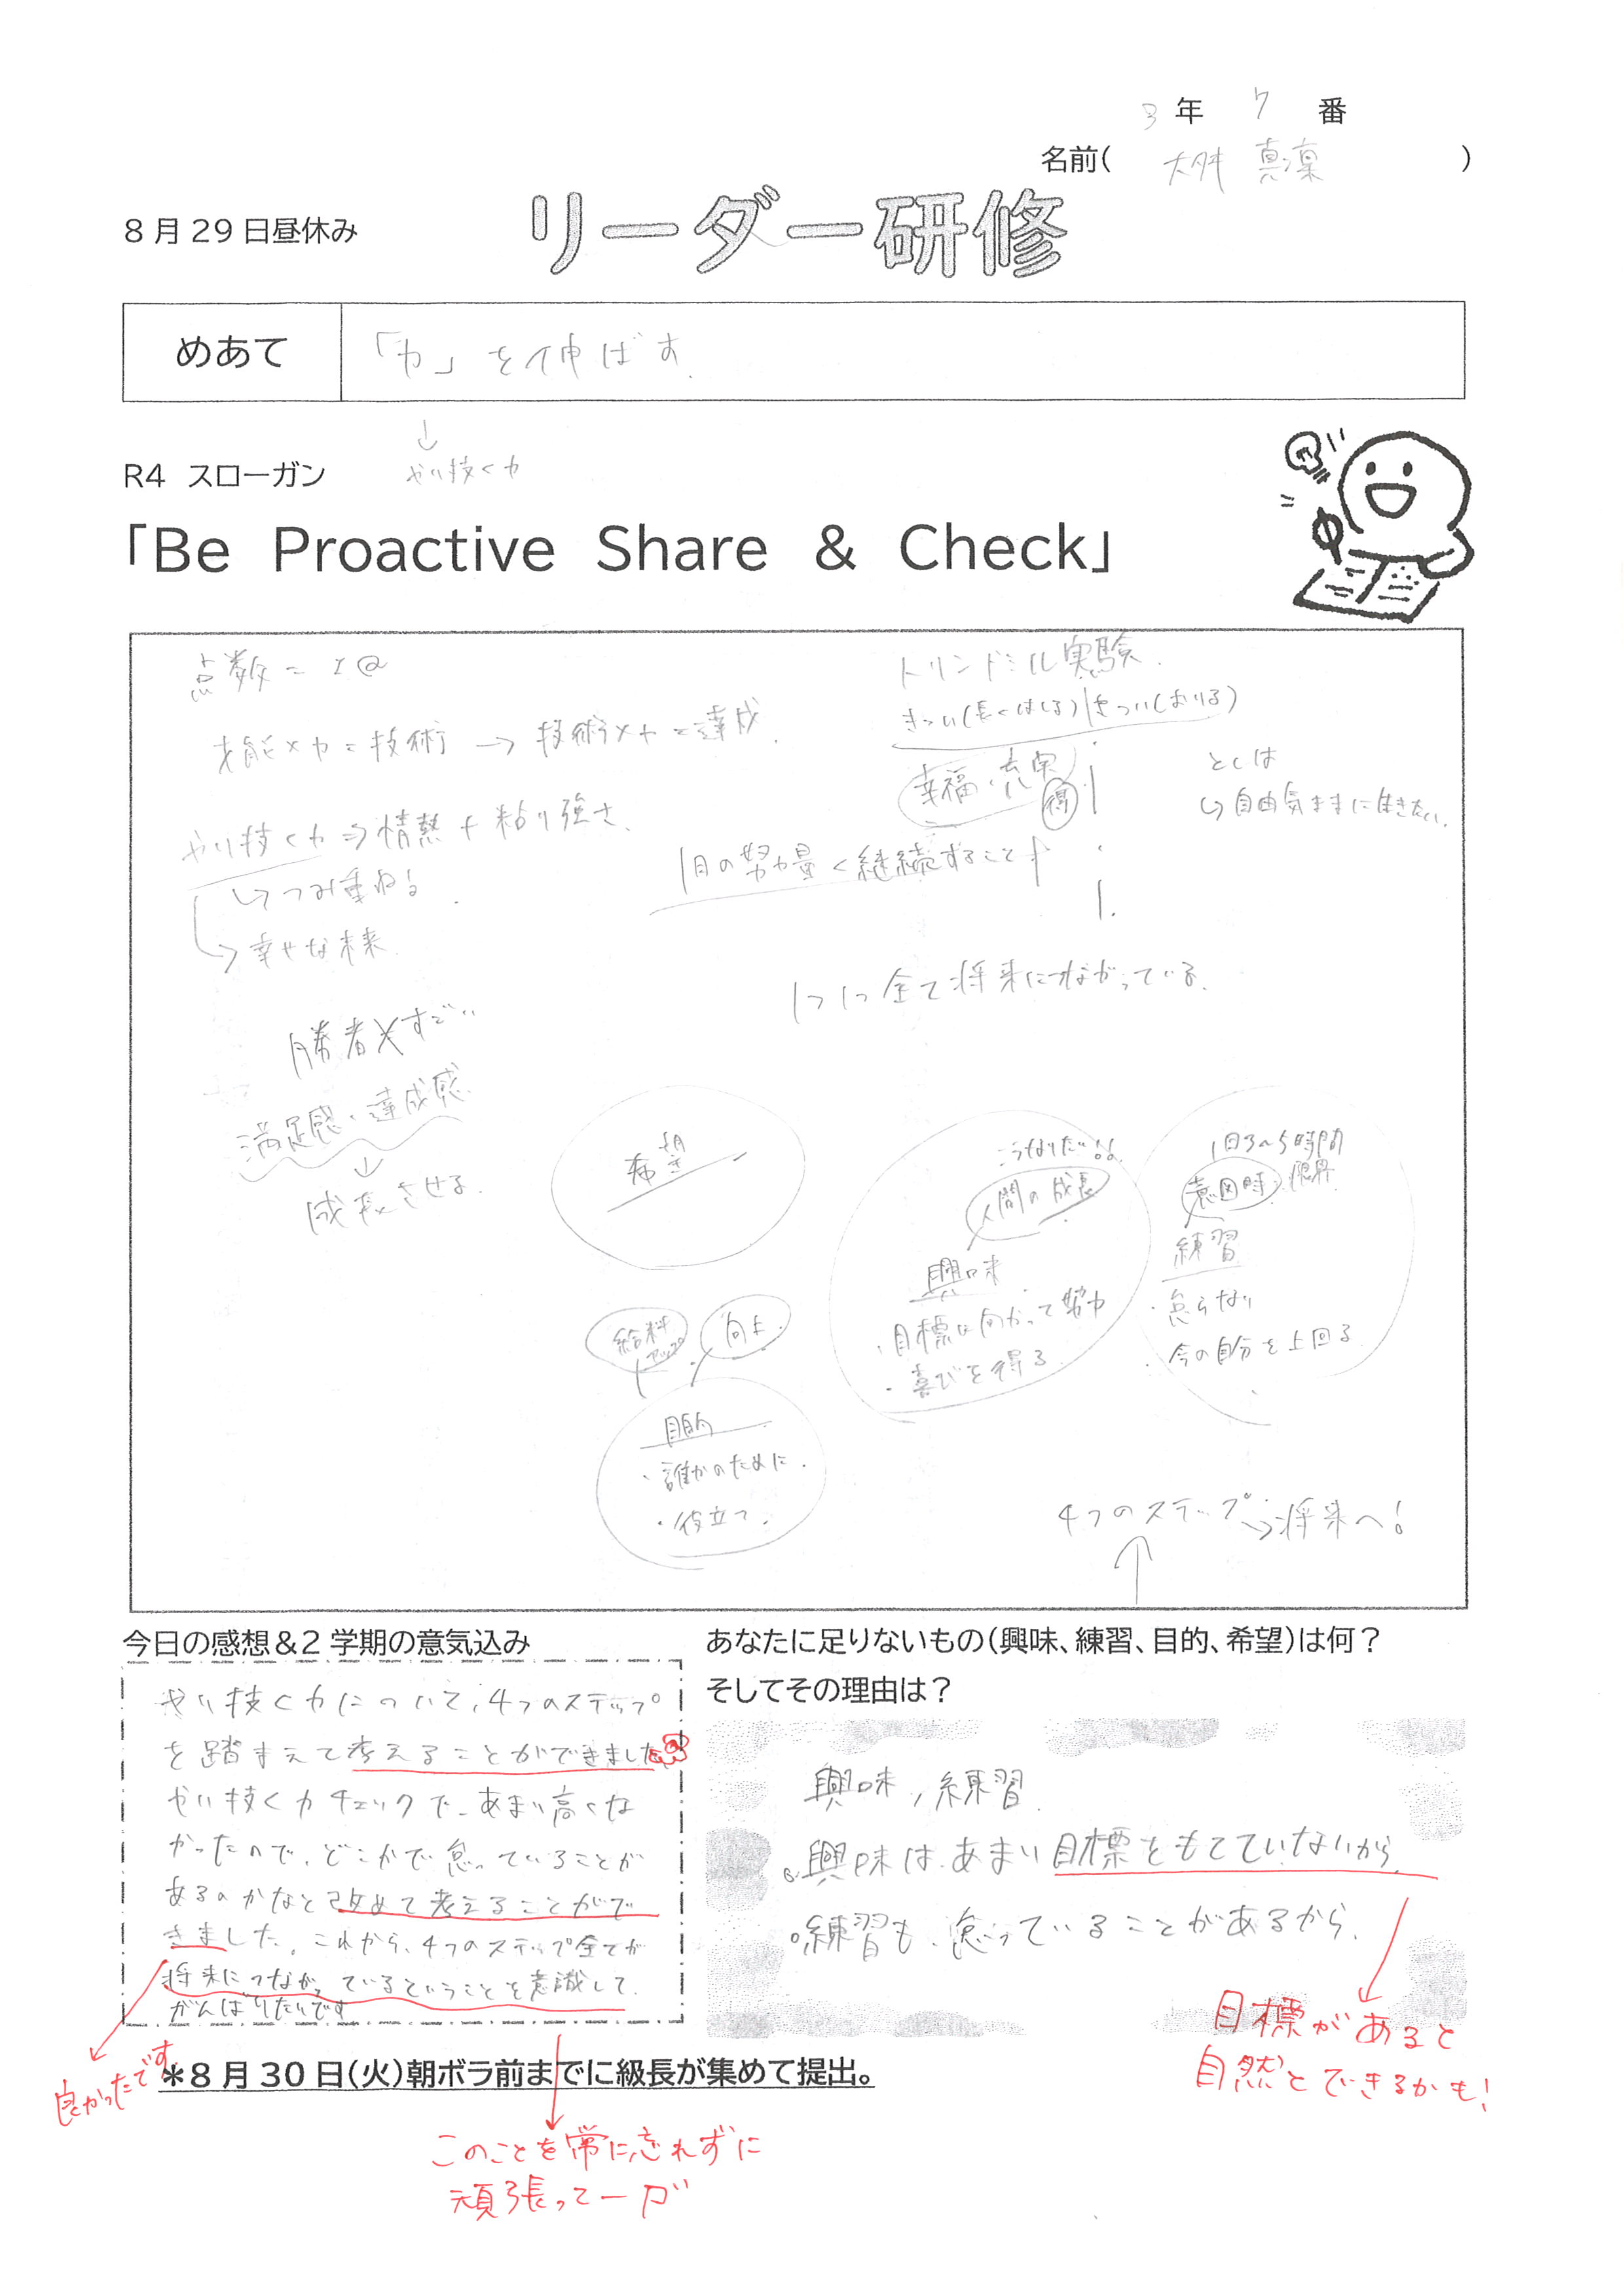 3年 7 番
名前( 大舛 真凜 )
8月29日昼休み
リーダー研修
めあて
「力」を伸ばす.
↓
やり抜く力
R4 スローガン
「Be Proactive Share & Check」
点数=
才能×力=技術→技術×力=達成.
やり抜く力⇒情熱+粘り強さ.
↳つみ重ねる.
→幸せな未来
きつい(長くはしる)|きつい(おりる)
幸福・
得
↳自由気ままに生きたい.
1日の努力量<継続すること
1つ1つ全て将来につながっている.
勝者 すごい
満足感・達成感
↓
成長させる.
希望
こうなりたい!!
人間の成長
興味
・目標に向かって努力
・喜びを得る
1回3~5時間
限界
練習
・怠らない
・今の自分を上回る
給料アップ
向上
目的
・誰かのために.
・役立つ.
4つのステップ→将来へ!
↑
今日の感想&2学期の意気込み
やり抜く力について、4つのステップ
を踏まえて考えることができました
やり抜く力チェックで、あまり高くな
かったので、どこかで怠っていることが
あるのかなと改めて考えることがで
きました。これから、4つのステップ全てが
将来につながっているということを意識して
がんばりたいです
良かったです
あなたに足りないもの(興味、練習、目的、希望)は何?
そしてその理由は?
興味、練習
興味は、あまり目標をもてていないから.
練習も、怠っていることがあるから.
目標があると
自然とできるかも!
*8月30日(火)朝ボラ前までに級長が集めて提出。
このことを常に忘れずに
頑張って